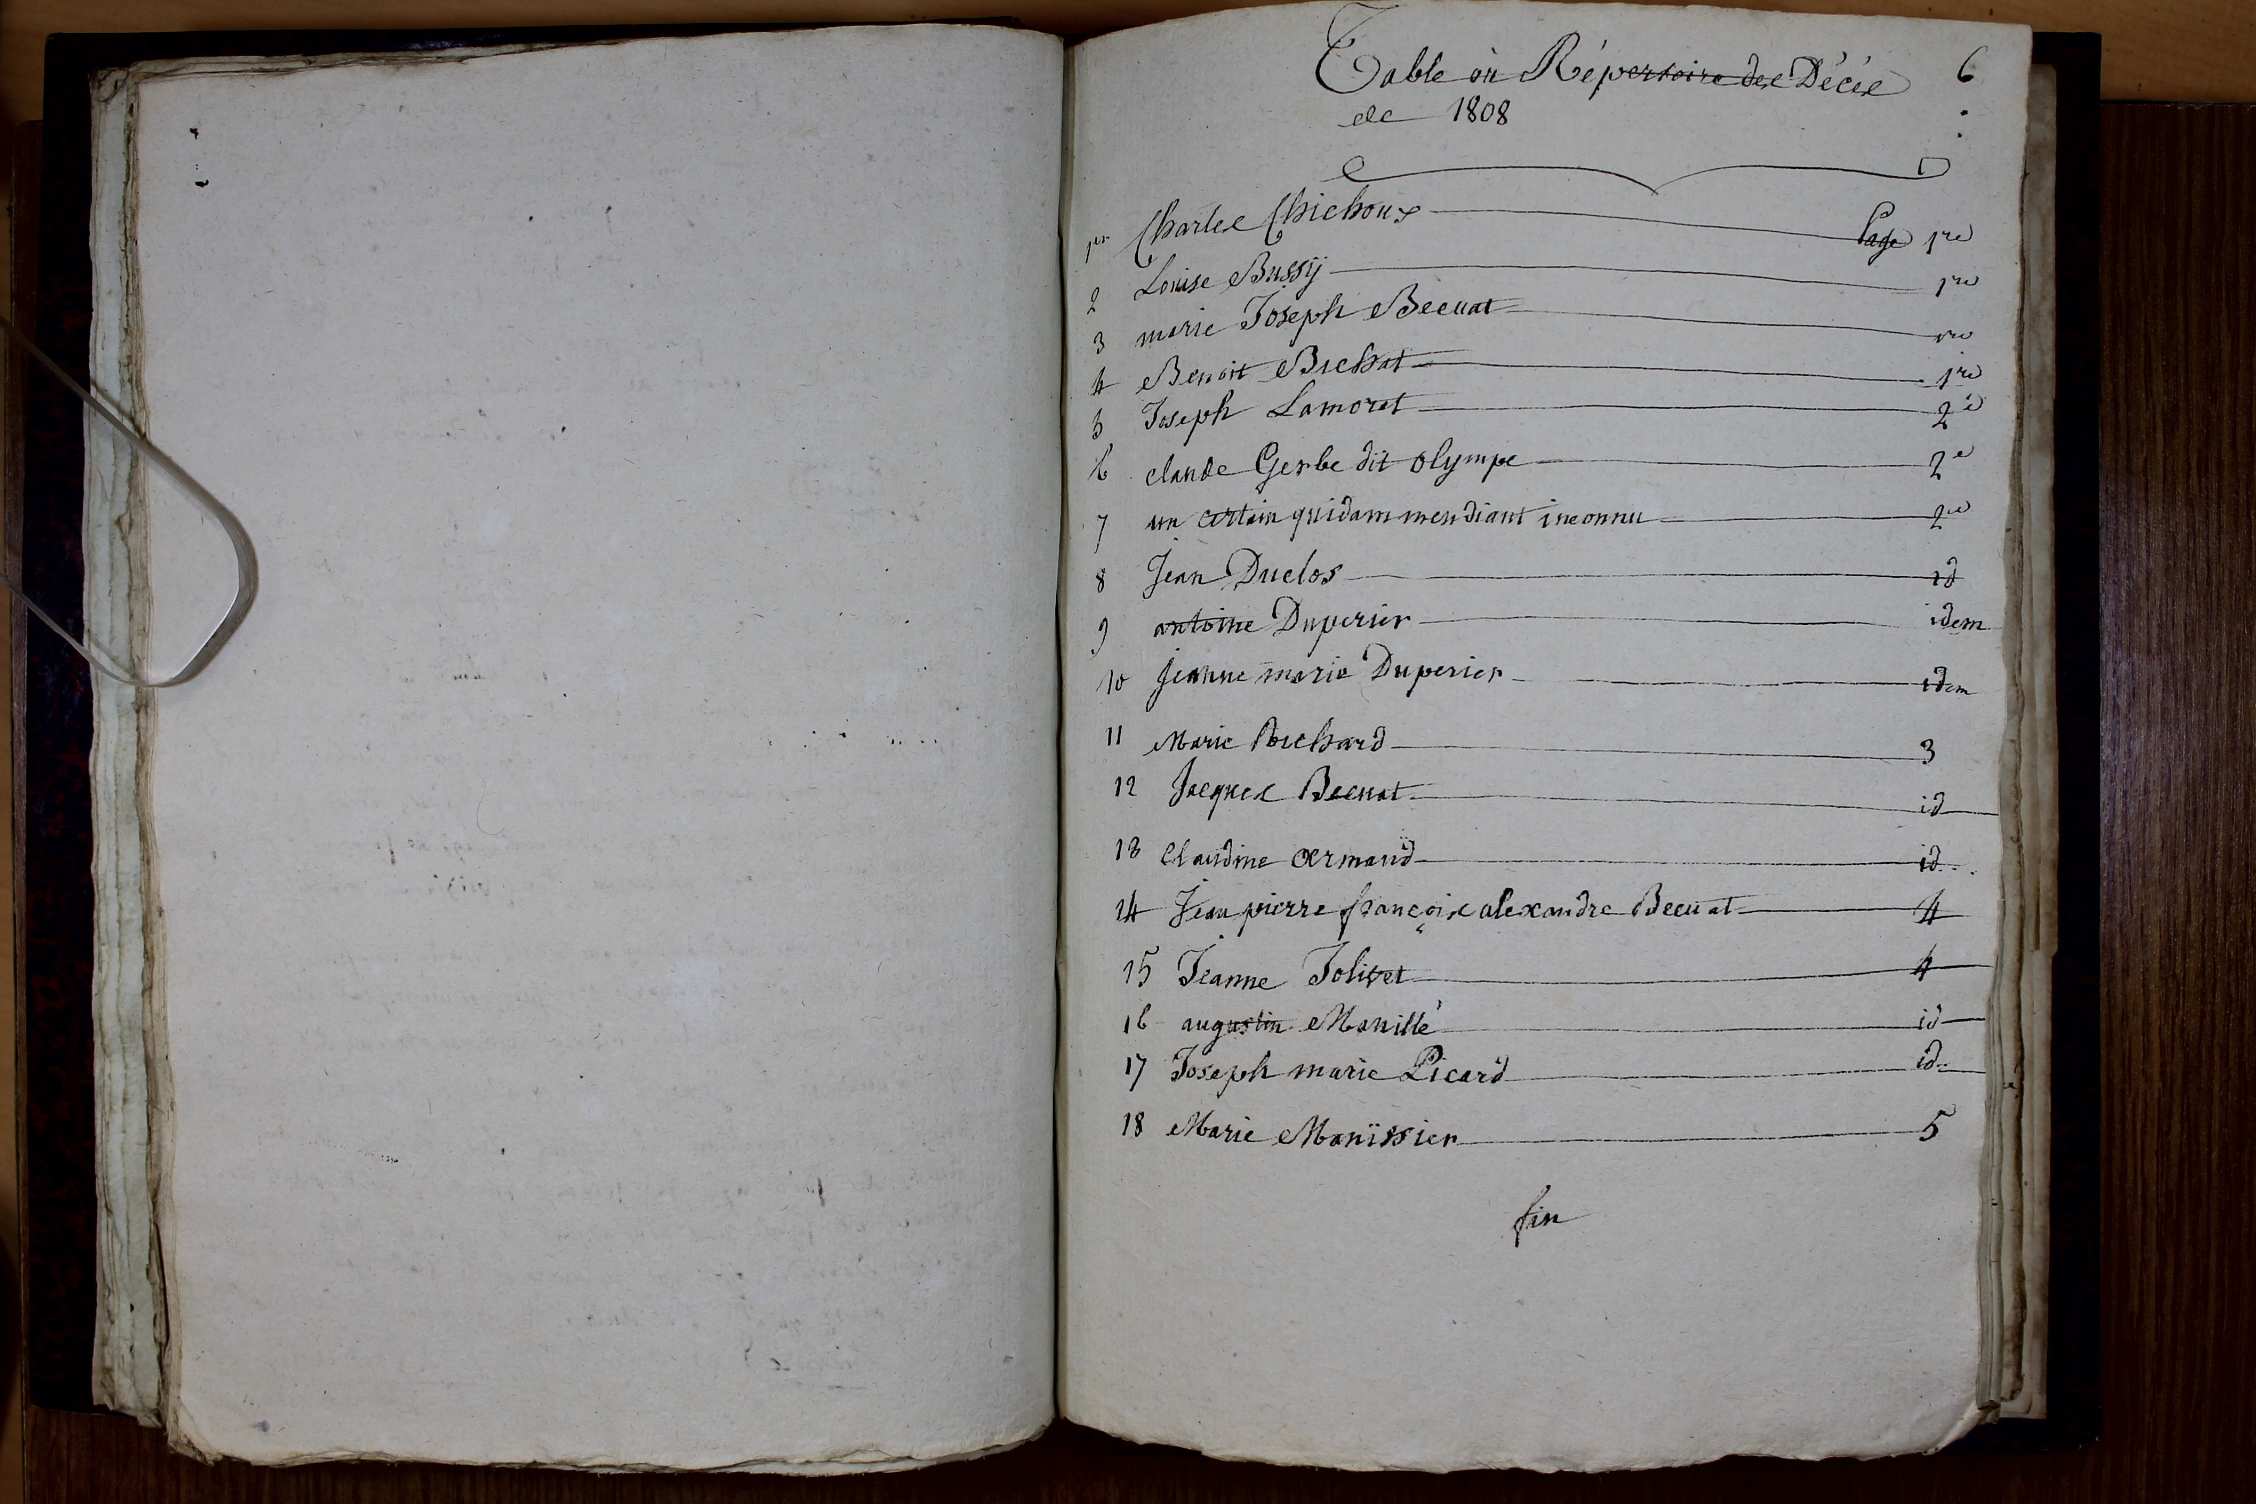 Table où Répertoire des Décés 6
de 1808
1er Charles Chichoux Page 1re
2 Louise Bussÿ 1re
3 marie Joseph Becuat 1re
4 Benoit Bichat 1re
5 Joseph Lamoret 2e
6 claude Gerbe dit olympe 2e
7 un certain quidam mendiant inconnu 2e
8 Jean Duclos id
9 antoine Duperier idem
10 Jeanne marie Duperier idem
11 Marie 3
12 Jacques Becuat id
13 Claudine id
14 Jean pierre françois alexandre Becuat 4
15 Jeanne Jolivet 4
16 augustin Manillé id
17 Joseph marie Picard id
18 Marie Manissier 5
fin